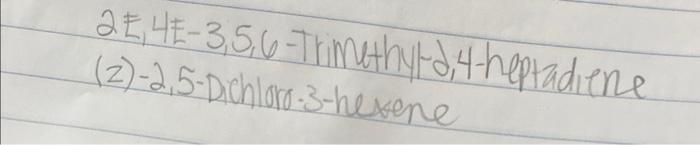 2E,4E-3,5,6-Trimethyl-2,4-heptadiene
(Z)-2,5-Dichloro-3-hexene